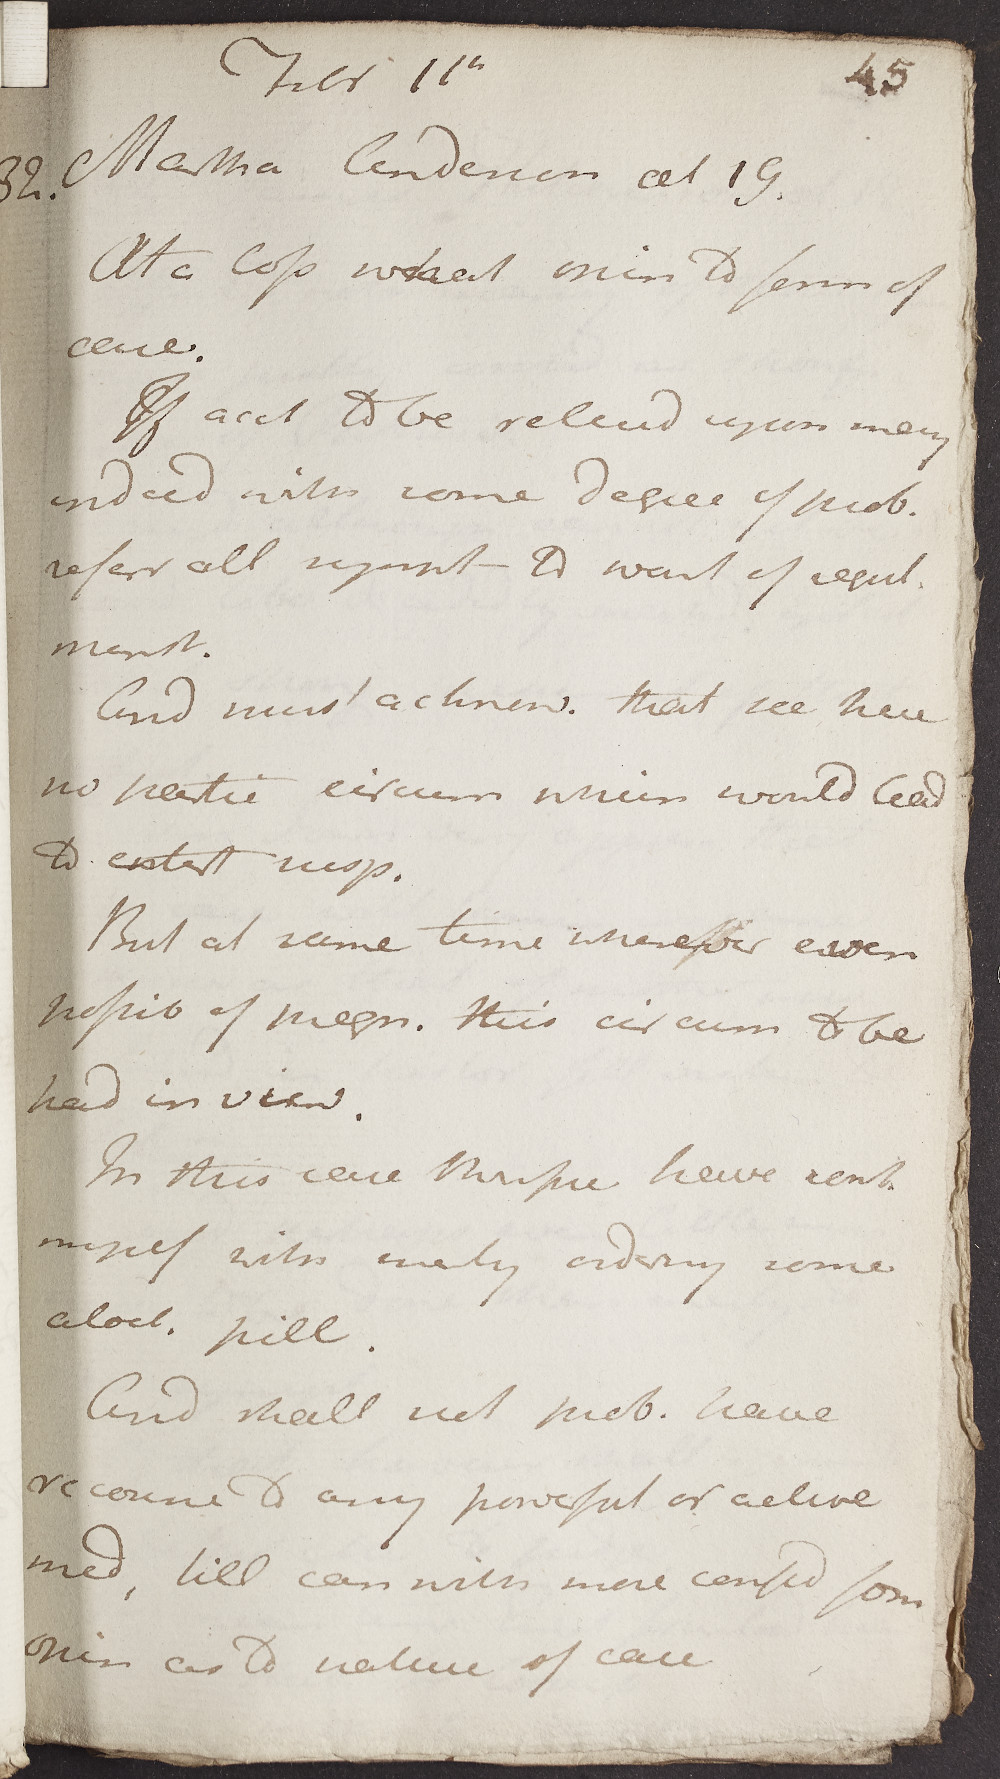 Febr 11th
45
32. Martha Anderson aet 19.
At a loss what opin to form of
case.
If acct to be relied upon may
indeed with some degree of prob.
refer all sympt to want of regul.
menst.
And must acknow. that see here
no partic circum which would lead
to entert susp.
But at same time wherever even
possib of pregn. this circum to be
had in view.
In this case therefore have cont.
myself with merely ordering some
aloet. pill.
And shall not prob. have
recourse to any powerful or active
med, till can with more confid form
opin as to nature of case